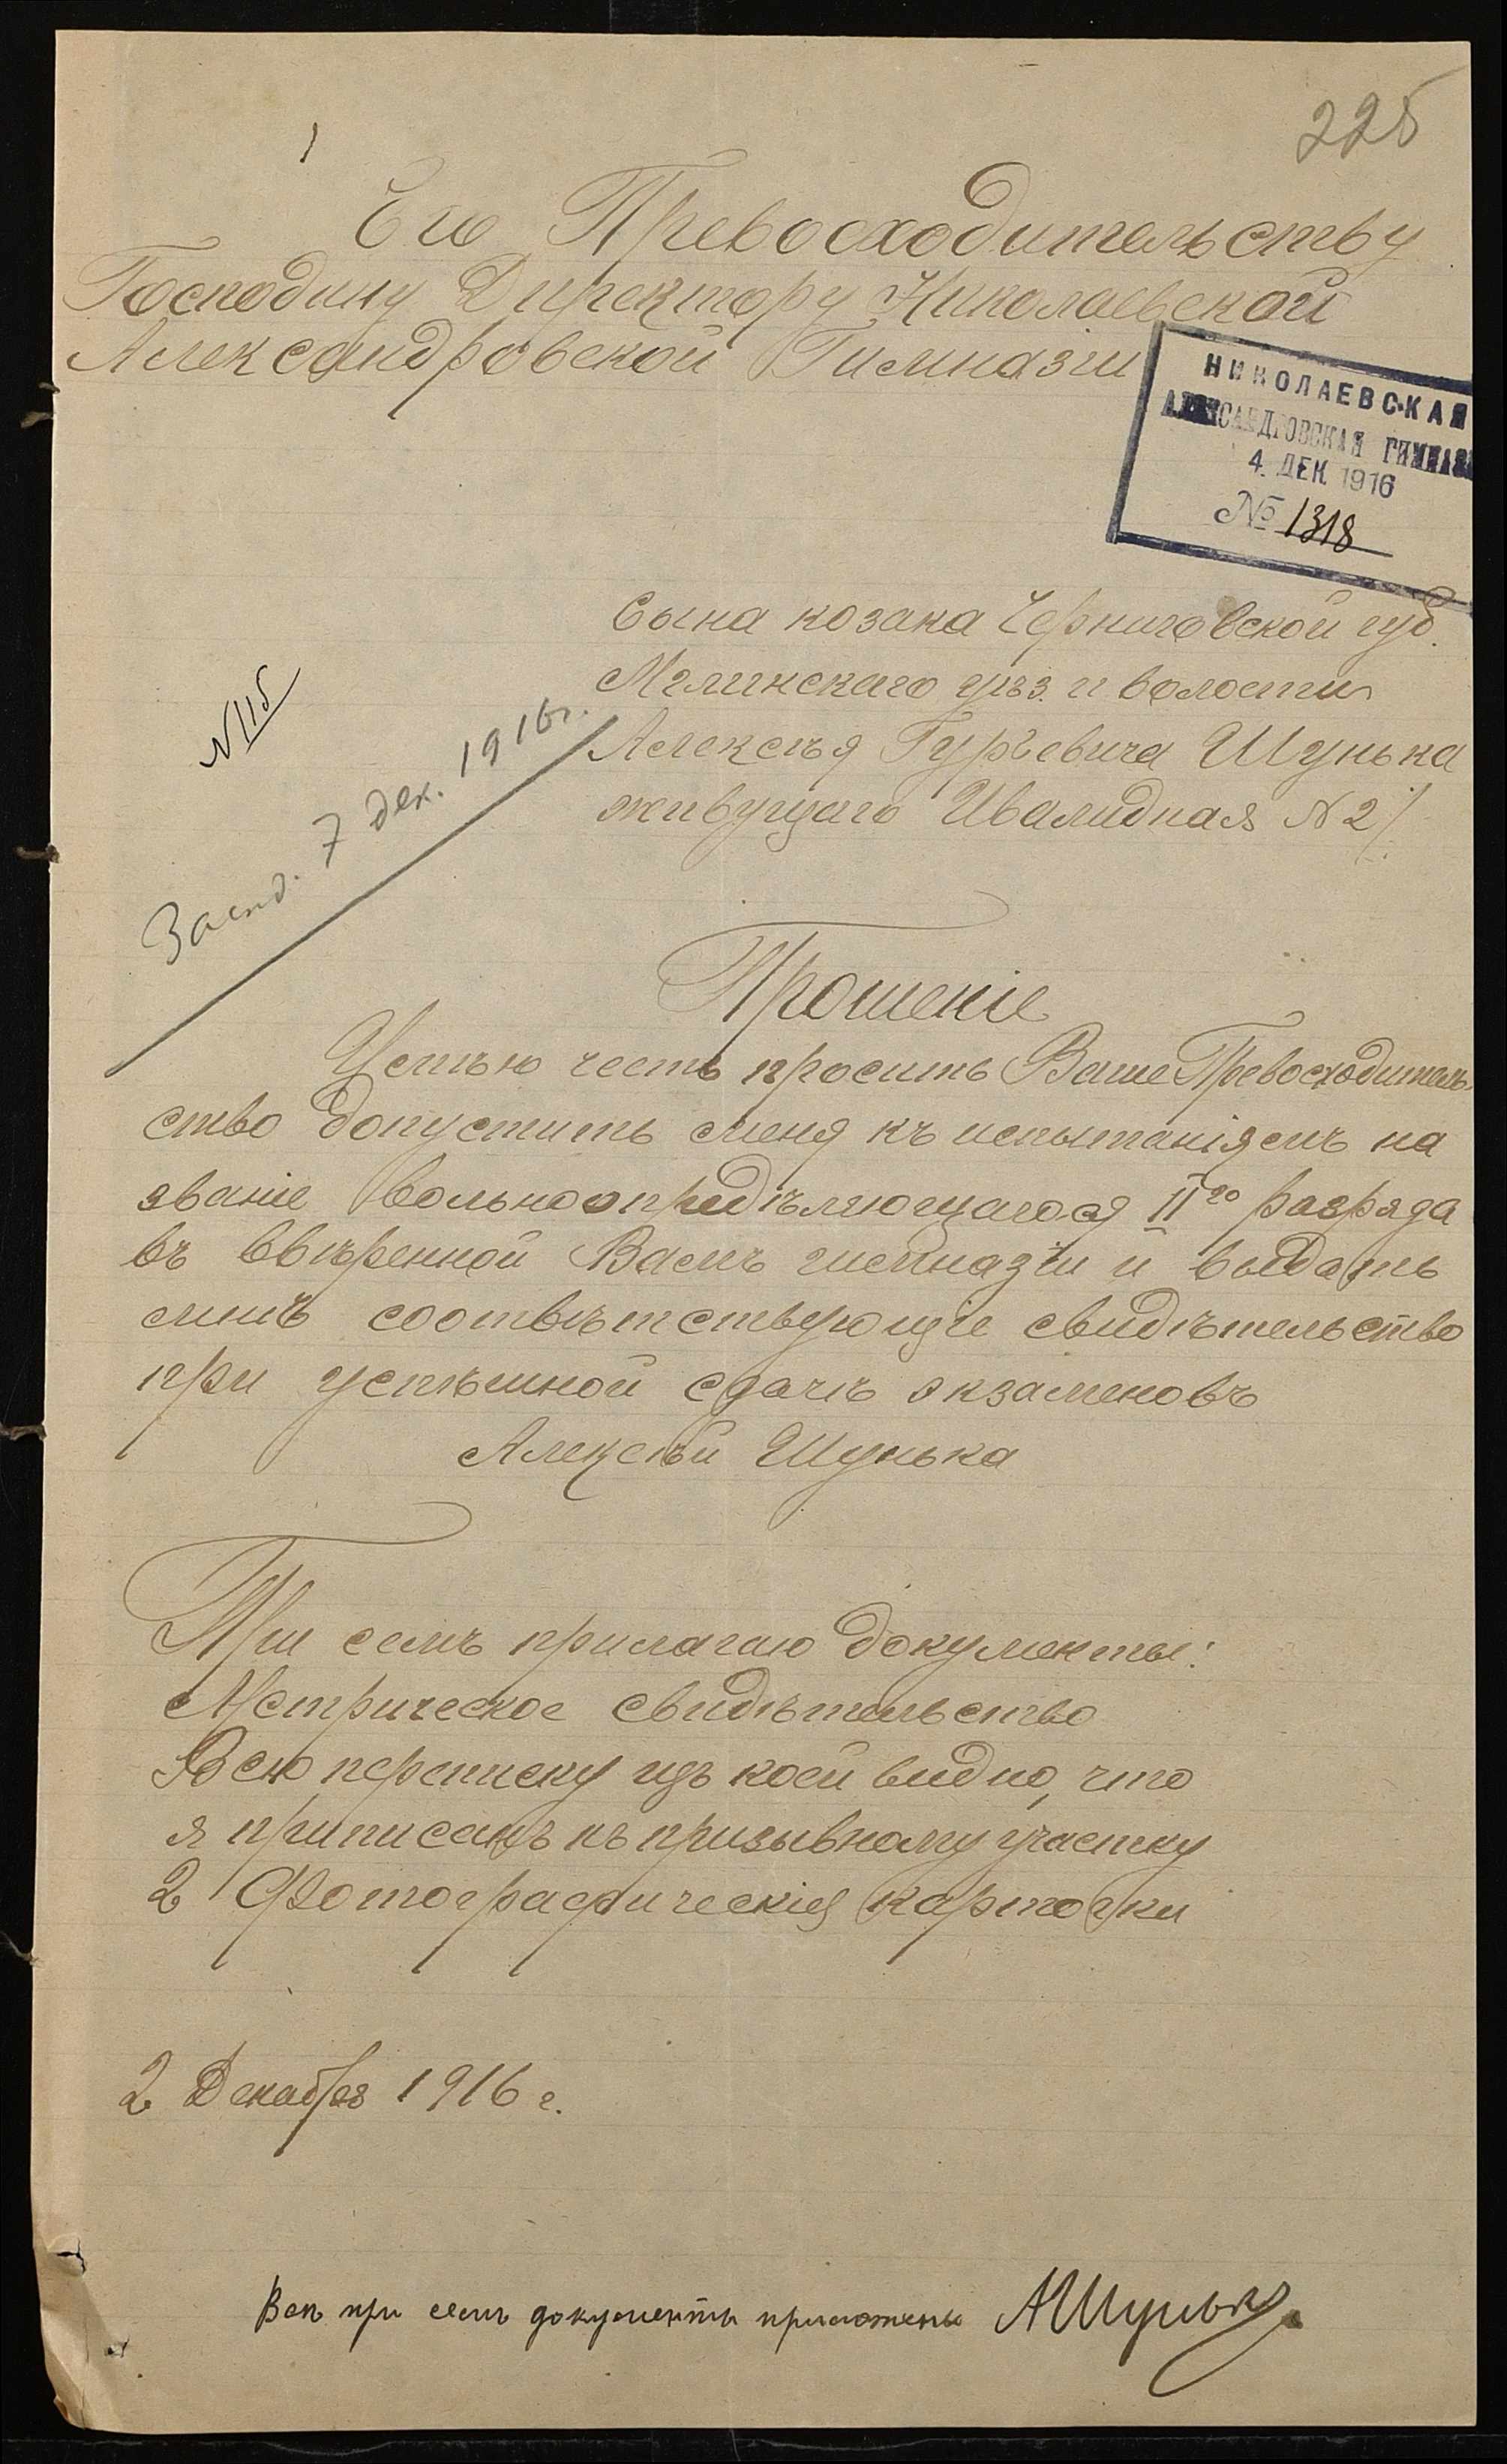 225
1
Его Превосходительству
Господину Директору Николаевской
Александровской Гимназiи
НИКОЛАЕВСКАЯ
АЛЕКСАНДРОВСКАЯ ГИМНАЗ
4. ДЕК. 1916
№ 1318
Сына козака Черниговской губ.
Мглинскаго уѣз. и волости
Алексѣя Гурьевича Шунька
живущаго Ивалидная N 2
N 115
7 дек. 1916г.
Прошенiе
Имѣю честь просить Ваше Превосходитель-
ство допустить меня къ испытанiямъ на
званiе вольноопредѣляющагося II го разряда
въ ввѣренной Вамъ гимназiи и выдать
мнѣ соотвѣтствующiе свидѣтельство
при успѣшной сдачѣ экзаменовъ
Алексѣй Шунька
При семъ прилагаю документы:
Метрическое свидѣтельство
Всю переписку изъ коей видно, что
я приписанъ къ призывному участку
2 Фотографическiя карточки
2 Декабря 1916 г.
Всѣ при семъ документы приложены АШунька